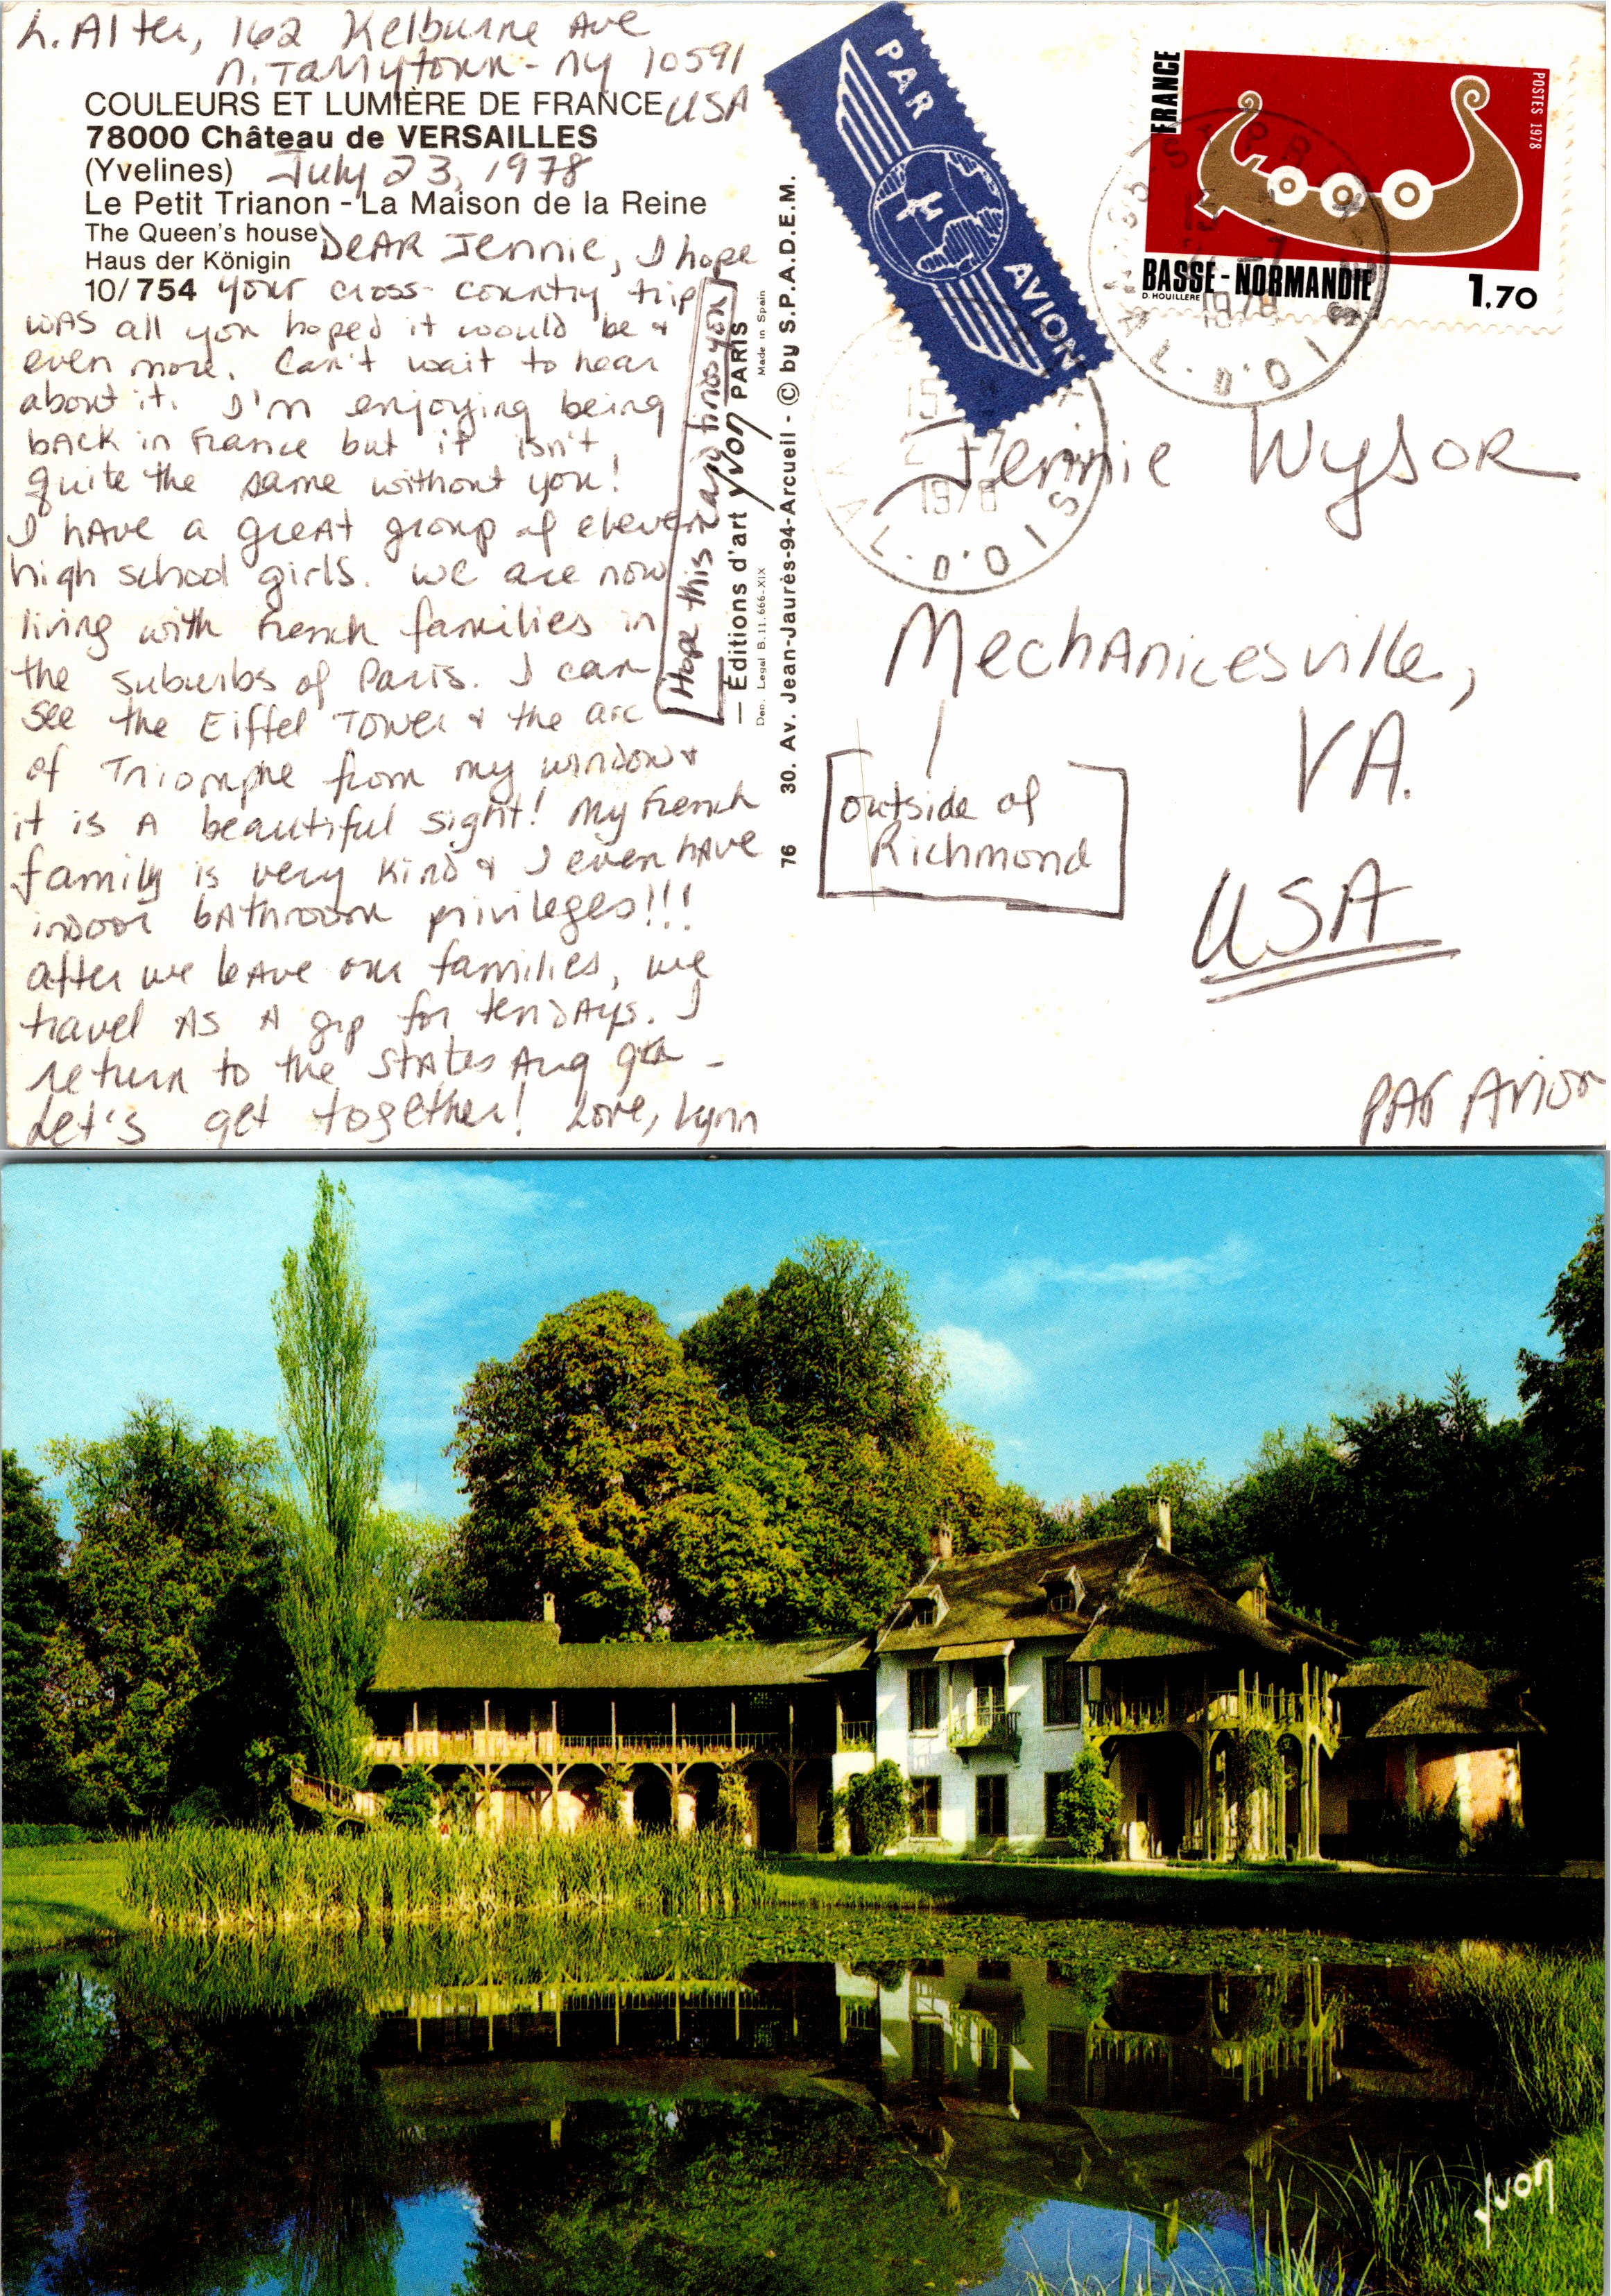 L. Alter, 162 Kelburne Ave
N. Tarrytown - NY 10591
USA
COULEURS ET LUMIÈRE DE FRANCE
78000 Château de VERSAILLES
(Yvelines)
July 23, 1978
Le Petit Trianon - La Maison de la Reine
The Queen's house
Haus der Königin
10/754
Dear Jennie, I hope
your cross-country trip
was all you hoped it would be &
even more. Can't wait to hear
about it. I'm enjoying being
back in France but it isn't
quite the same without you!
I have a great group of eleven
high school girls. We are now
living with French families in
the suburbs of Paris. I can
see the Eiffel Tower & the arc
of Triomphe from my window &
it is a beautiful sight! My French
family is very kind & I even have
indoor bathroom privileges!!!
After we leave our families, we
travel as a grp for ten days. I
return to the States Aug 9th -
Let's get together! Love, Lynn
Hope this card finds you
— Éditions d'art yvon PARIS
Dep. Legal B.11.666-XIX
Made in Spain
76 30. Av. Jean-Jaurès-94-Arcueil - © by S.P.A.D.E.M.
PAR AVION
FRANCE
POSTES 1978
BASSE-NORMANDIE
D. HOUILLERE
1,70
1978
VAL-D'OISE
15
1978
VAL-D'OIS
Jennie Wysor
Mechanicesville,
VA.
[outside of
Richmond]
USA
PAR AVION
yvon